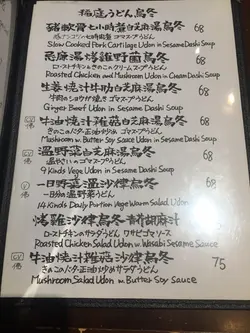 稻庭うどん烏冬
豬軟骨七小時煮白芝麻湯烏冬 68
Slow Cooked Pork Cartilage Udon in Sesame Dashi Soup
忌廉湯烤雞野菌烏冬 68
ローストチキン&きのこクリームスープうどん
Roasted Chicken and Mushroom Udon in Cream Dashi Soup
生姜燒汁牛肋白芝麻湯烏冬 68
牛肉のショウガ焼き ゴマスープうどん
Ginger Beef Udon in Sesame Dashi Soup
牛油燒汁雜菇白芝麻湯烏冬 68
きのこのバター正油炒め ゴマスープうどん
Mushroom w. Butter Soy Sauce Udon in Sesame Dashi Soup
溫野菜白芝麻湯烏冬 68
温やさいのゴマスープうどん
9 Kinds Vege Udon in Sesame Dashi Soup
一日野菜溫沙律烏冬 68
一日分の温野菜うどん
14 Kinds Daily Portion Vege Warm Salad Udon
烤雞沙律烏冬 胡麻汁 68
ローストチキンのサラダうどん ワサビゴマソース
Roasted Chicken Salad Udon w. Wasabi Sesame Sauce
牛油燒汁雜菇沙律烏冬 75
きのこのバター正油炒めサラダうどん
Mushroom Salad Udon w. Butter Soy Sauce